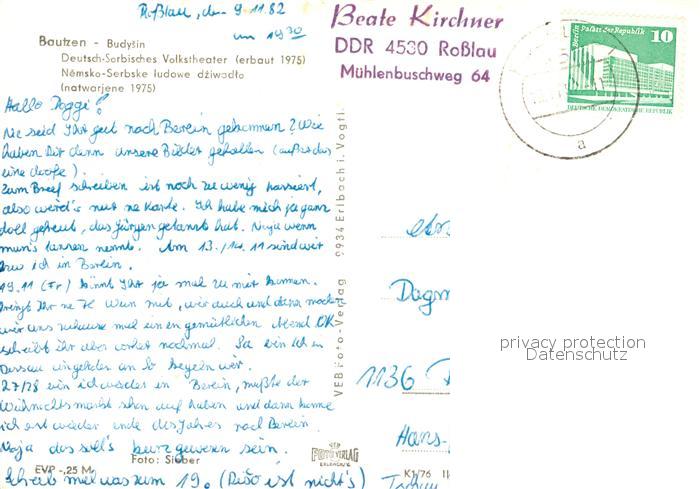 Roßlau, den 9.11.82
um 19³⁰
Bautzen - Budyšin
Deutsch-Sorbisches Volkstheater (erbaut 1975)
Němsko-Serbske ludowe dźiwadło
(natwarjene 1975)
Hallo Doggi!
Wie seid Ihr gut nach Berlin gekommen? Wie
haben Dir denn unsere Bilder gefallen (außer das
eine doofe).
Zum Brief schreiben ist noch zu wenig passiert,
also wird's nur ne Karte. Ich habe mich ja ganz
doll gefreut, das Jürgen getanzt hat. Naja wenn
man's tanzen nennt. Am 13./14.11 sind wir
bzw ich in Berlin.
19.11 (Fr) könnt Ihr ja mal zu mir kommen.
bringt Ihr ne Fl Wein mit, wir auch und dann machen
wir uns zuhause mal einen gemütlichen Abend. OK
schreibt ihr aber vorher nochmal. Sa bin ich in
Dessau eingeladen an So kegeln wir.
27/28 bin ich wieder in Berlin, müßte der
Weihnachtsmarkt schon auf haben und dann komme
ich erst wieder ende des Jahres nach Berlin.
Naja das soll's kurz gewesen sein.
Foto: Sieber
EVP -,25 M
Schreib mal was zum 19. (Disko ist nicht's)
VEB Foto-Verlag 9934 Erlbach i. Vogtl.
VEB
FOTO VERLAG
ERLBACH
K1/76
Beate Kirchner
DDR 4530 Roßlau
Mühlenbuschweg 64
Berlin Palast der Republik
10
DEUTSCHE DEMOKRATISCHE REPUBLIK
a
Dagm
1136
Hans-
privacy protection
Datenschutz